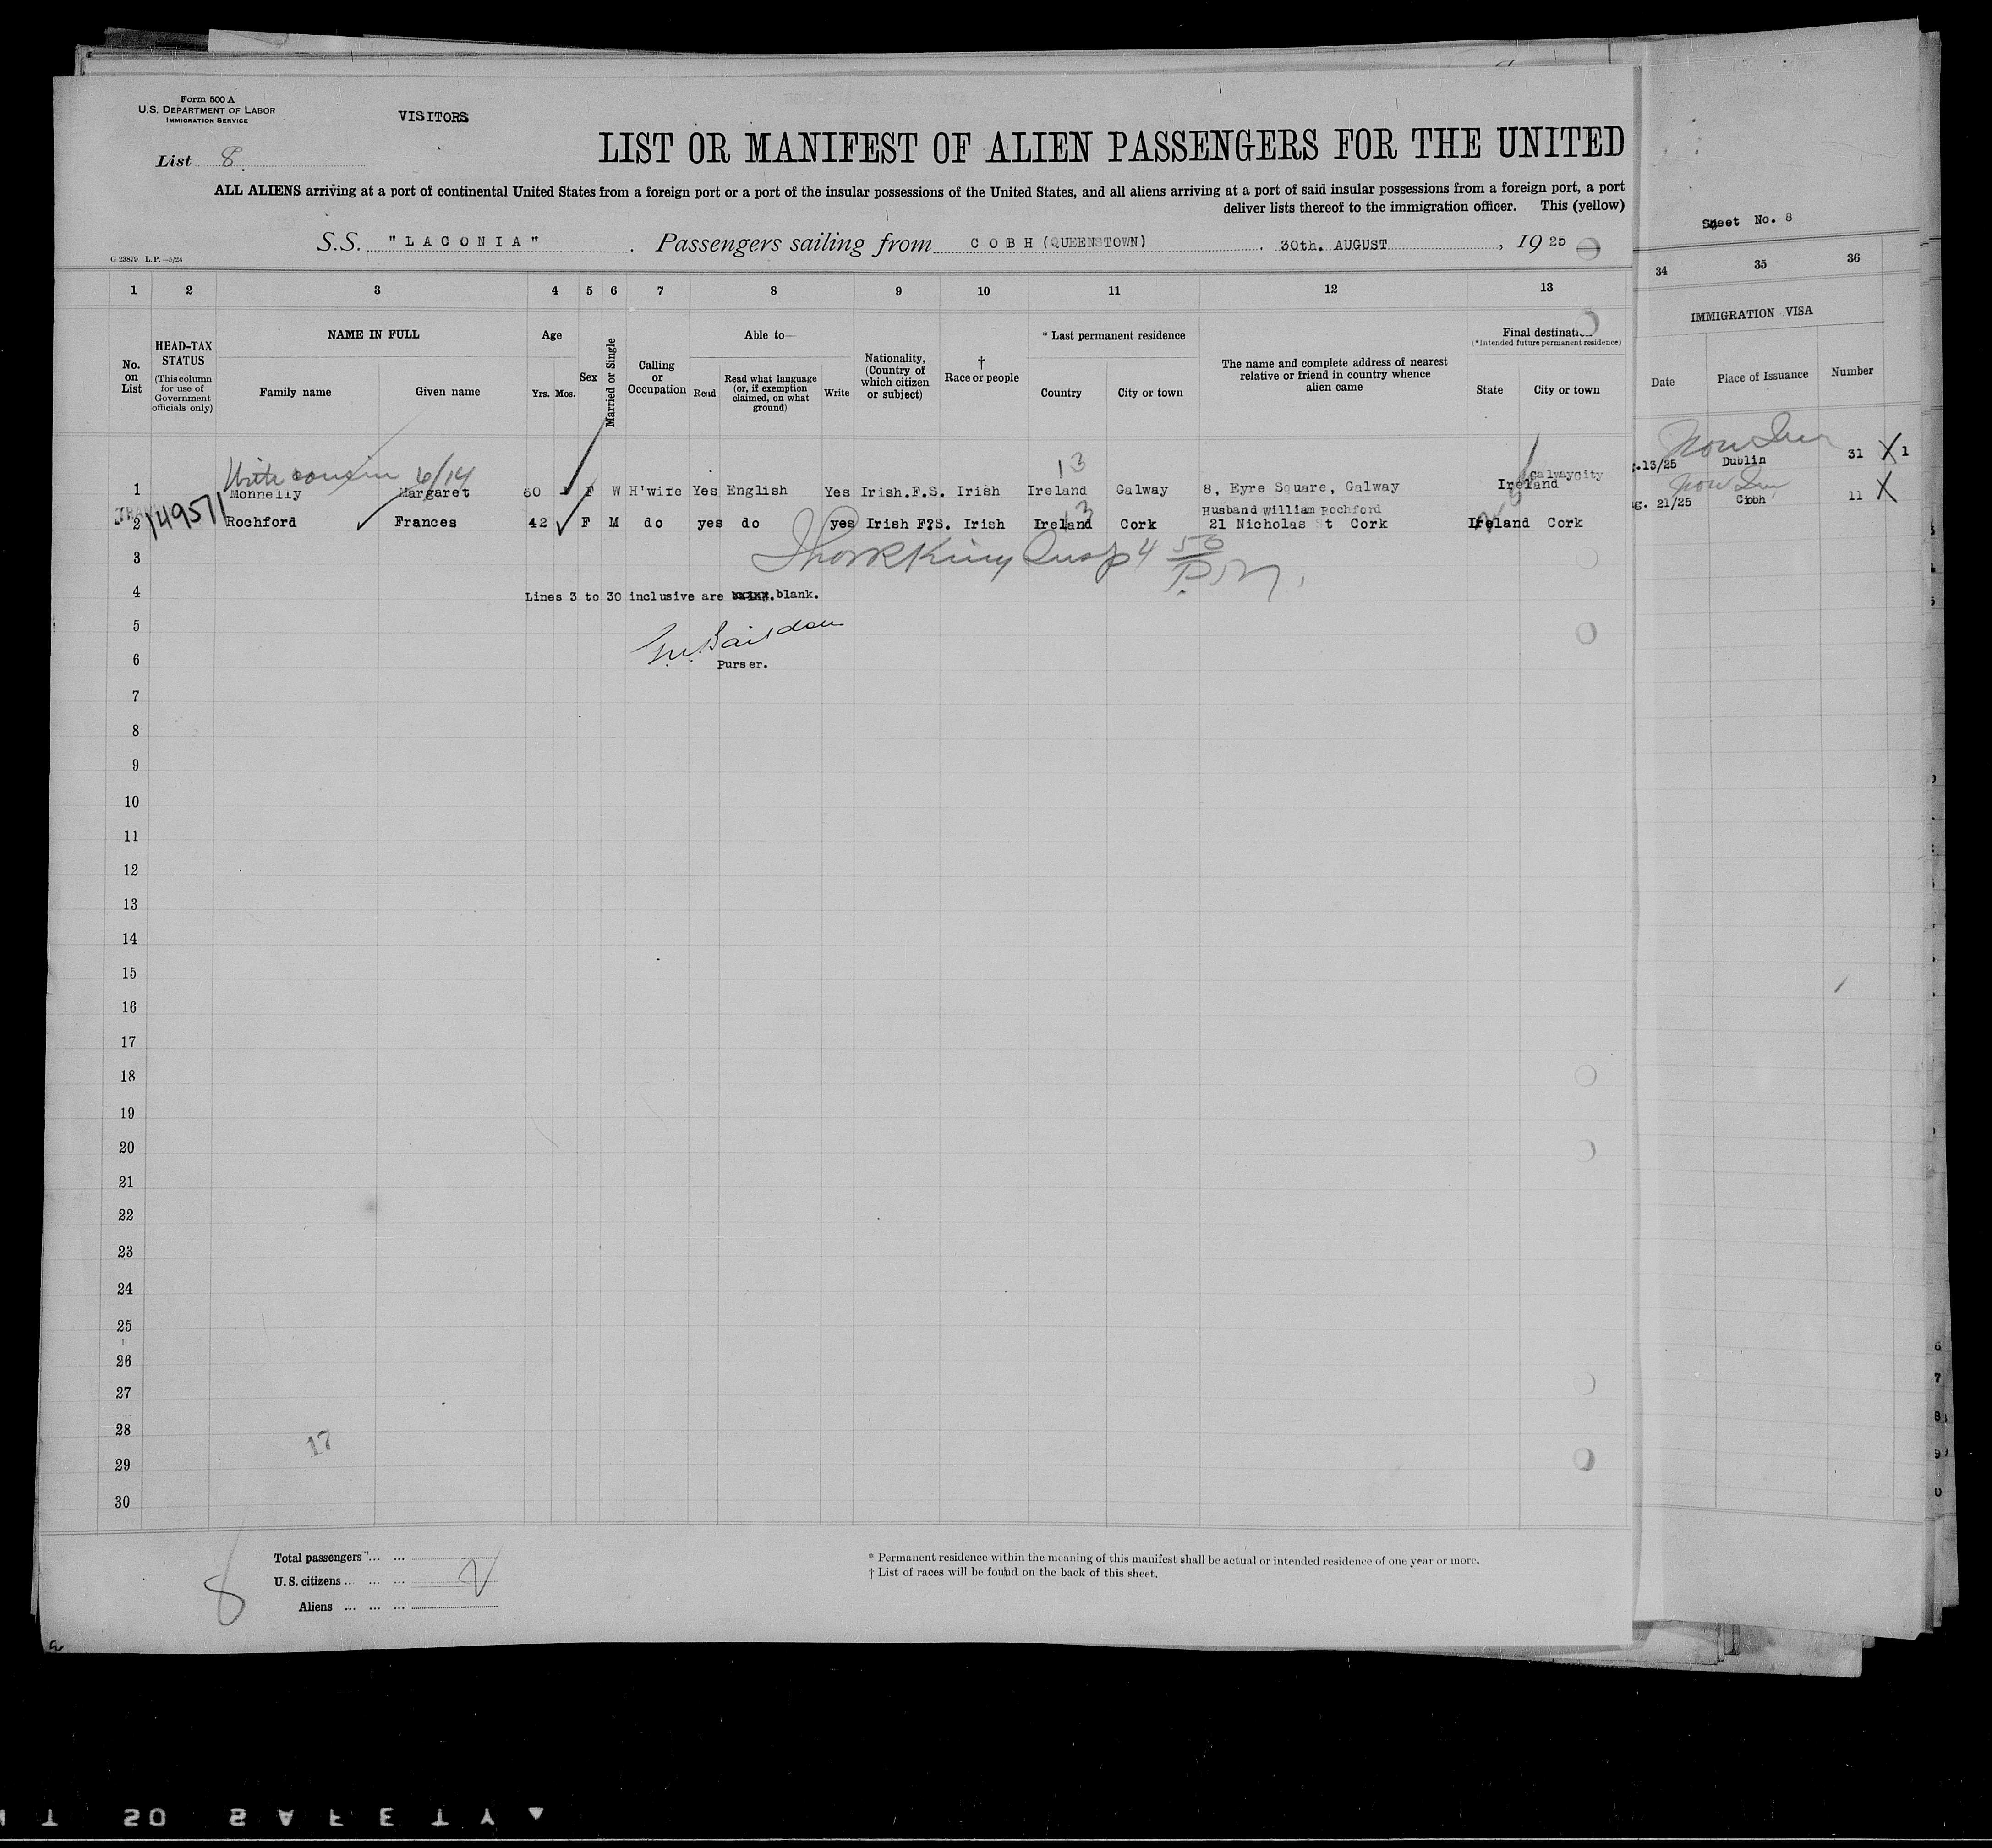 Form 500 A
U.S. DEPARTMENT OF LABOR
IMMIGRATION SERVICE
VISITORS
List 8
LIST OR MANIFEST OF ALIEN PASSENGERS FOR THE UNITED
ALL ALIENS arriving at a port of continental United States from a foreign port or a port of the insular possessions of the United States, and all aliens arriving at a port of said insular possessions from a foreign port, a port
deliver lists thereof to the immigration officer. This (yellow)
Sheet No. 8
S.S. "LACONIA". Passengers sailing from COBH (QUEENSTOWN). 30th. AUGUST, 1925
G 23879 L.P.—5/24
1 2 3 4 5 6 7 8 9 10 11 12 13 34 35 36
No. on List
HEAD-TAX STATUS
(This column for use of Government officials only)
NAME IN FULL
Family name Given name
Age
Yrs. Mos.
Sex
Married or Single
Calling or Occupation
Able to—
Read
Read what language (or, if exemption claimed, on what ground)
Write
Nationality, (Country of which citizen or subject)
† Race or people
* Last permanent residence
Country City or town
The name and complete address of nearest relative or friend in country whence alien came
Final destination
(*Intended future permanent residence)
State City or town
IMMIGRATION VISA
Date Place of Issuance Number
With cousin 6/14
13
1 Monnelly Margaret 60 F W H'wife Yes English Yes Irish.F.S. Irish Ireland Galway 8, Eyre Square, Galway Ireland Galwaycity .13/25 Dublin 31 X 1
149571
Husband William Rochford
2 Rochford Frances 42 F M do yes do yes Irish F?S. Irish Ireland Cork 21 Nicholas St Cork Ireland Cork g. 21/25 Cobh 11 X
13
3
King Insp 4 50 P.M.
4 Lines 3 to 30 inclusive are blank.
5
6 Purser.
7
8
9
10
11
12
13
14
15
16
17
18
19
20
21
22
23
24
25
26
27
28
17
29
30
8
Total passengers ... ...
U.S. citizens ... ... ...
Aliens ... ... ...
* Permanent residence within the meaning of this manifest shall be actual or intended residence of one year or more.
† List of races will be found on the back of this sheet.
SAFETY